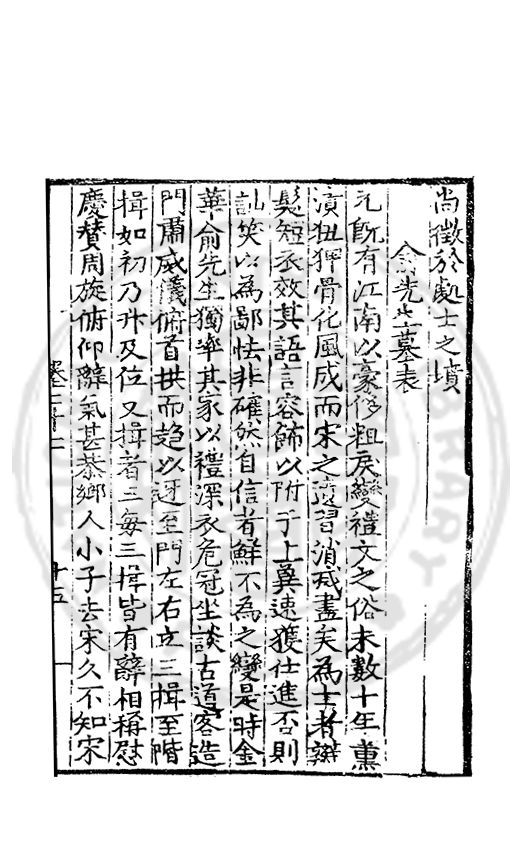 尚徵於處士之墳
俞先生墓表
元旣有江南以豪侈粗戾變禮文之俗未數十年薰
漬狃狎骨化風成而宋之遺習消滅盡矣為士者辮
髮短衣效其語言容飾以附于上冀速獲仕進否則
訕笑以為鄙怯非確然自信者鮮不為之變是時金
華俞先生獨率其家以禮深衣危冠坐談古道客造
門肅威儀俯首拱而趍以迓至門左右立三揖至階
揖如初乃升及位又揖者三每三揖皆有辭相稱慰
慶賛周旋俯仰辭氣甚恭鄉人小子去宋久不知宋
十五